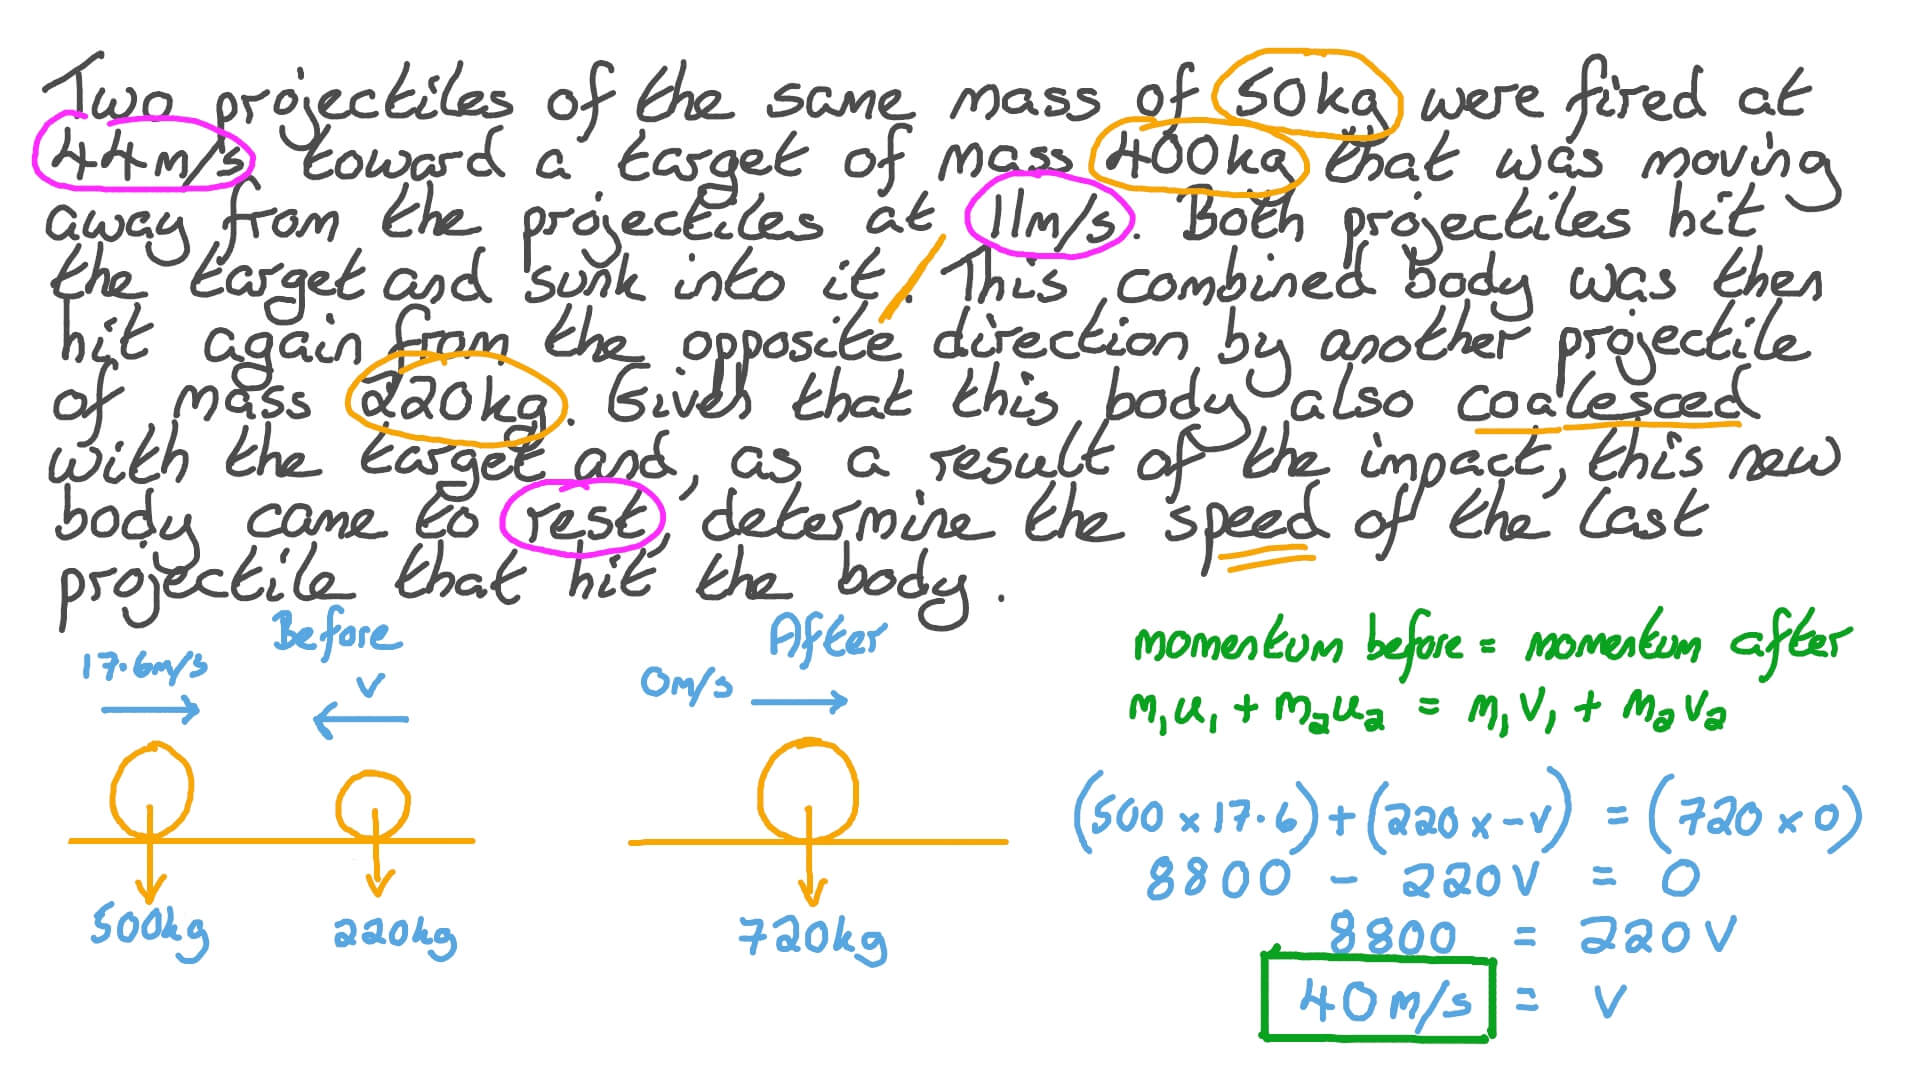 Two projectiles of the same mass of 50kg were fired at
44m/s toward a target of mass 400kg that was moving
away from the projectiles at 11m/s. Both projectiles hit
the target and sunk into it. This combined body was then
hit again from the opposite direction by another projectile
of mass 220kg. Given that this body also coalesced
with the target and, as a result of the impact, this new
body came to rest, determine the speed of the last
projectile that hit the body.
Before
17.6m/s
v
500kg
220kg
After
0m/s
720kg
momentum before = momentum after
m₁u₁ + m₂u₂ = m₁v₁ + m₂v₂
(500 × 17.6) + (220 × -v) = (720 × 0)
8800 - 220v = 0
8800 = 220v
40m/s = v